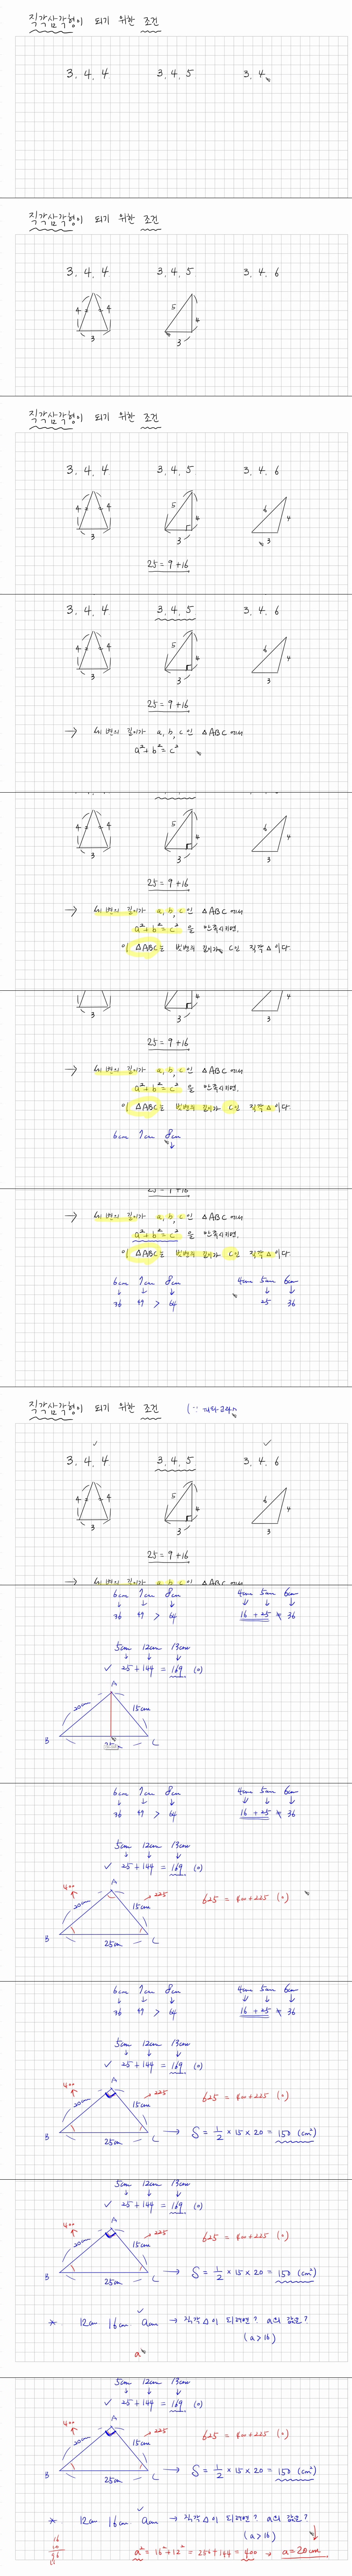 직각삼각형이 되기 위한 조건
3. 4. 4 3. 4. 5 3. 4.
직각삼각형이 되기 위한 조건
3. 4. 4 3. 4. 5 3. 4. 6
4 4 5 4
3 3
직각삼각형이 되기 위한 조건
3. 4. 4 3. 4. 5 3. 4. 6
4 4 5 4 6 4
3 3 3
25 = 9 + 16
3. 4. 4 3. 4. 5 3. 4. 6
4 4 5 4 6 4
3 3 3
25 = 9 + 16
→ 세 변의 길이가 a, b, c 인 △ABC 에서
a² + b² = c²
4 4 5 4 6 4
3 3 3
25 = 9 + 16
→ 세 변의 길이가 a, b, c 인 △ABC 에서
a² + b² = c² 을 만족시키면,
이 △ABC는 빗변의 길이가 C인 직각 △ 이다
3 3 3
25 = 9 + 16
→ 세 변의 길이가 a, b, c 인 △ABC 에서
a² + b² = c² 을 만족시키면,
이 △ABC는 빗변의 길이가 C인 직각 △ 이다
6cm 7cm 8cm
↓
25 = 9 + 16
→ 세 변의 길이가 a, b, c 인 △ABC 에서
a² + b² = c² 을 만족시키면,
이 △ABC는 빗변의 길이가 C인 직각 △ 이다
6cm 7cm 8cm 4cm 5cm 6cm
↓ ↓ ↓ ↓ ↓
36 49 > 64 25 36
직각삼각형이 되기 위한 조건 (∵
✓ ✓
3. 4. 4 3. 4. 5 3. 4. 6
4 4 5 4 6 4
3 3 3
25 = 9 + 16
→ 세 변의 길이가 a, b, c 인 △ABC 에서
6cm 7cm 8cm 4cm 5cm 6cm
↓ ↓ ↓ ↓ ↓ ↓
36 49 > 64 16 + 25 ≠ 36
5cm 12cm 13cm
↓ ↓ ↓
✓ 25 + 144 = 169 (o)
A
20cm 15cm
B C
6cm 7cm 8cm 4cm 5cm 6cm
↓ ↓ ↓ ↓ ↓ ↓
36 49 > 64 16 + 25 ≠ 36
5cm 12cm 13cm
↓ ↓ ↓
✓ 25 + 144 = 169 (o)
400 A 225 625 = 400 + 225 (o)
20cm 15cm
B 25cm C
6cm 7cm 8cm 4cm 5cm 6cm
↓ ↓ ↓ ↓ ↓ ↓
36 49 > 64 16 + 25 ≠ 36
5cm 12cm 13cm
↓ ↓ ↓
✓ 25 + 144 = 169 (o)
400 A 225 625 = 400 + 225 (o)
20cm 15cm
B 25cm C → S = 1/2 × 15 × 20 = 150 (cm²)
5cm 12cm 13cm
↓ ↓ ↓
✓ 25 + 144 = 169 (o)
400 A 225 625 = 400 + 225 (o)
20cm 15cm
B 25cm C → S = 1/2 × 15 × 20 = 150 (cm²)
* 12cm 16cm acm → 직각 △이 되려면? a의 값은?
(a > 16)
a
5cm 12cm 13cm
↓ ↓ ↓
✓ 25 + 144 = 169 (o)
400 A 225 625 = 400 + 225 (o)
20cm 15cm
B 25cm C → S = 1/2 × 15 × 20 = 150 (cm²)
* 12cm 16cm acm → 직각 △이 되려면? a의 값은?
(a > 16)
a² = 16² + 12² = 256 + 144 = 400 → a = 20cm